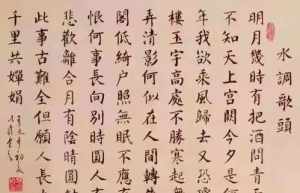 水調歌頭
明月幾時有把酒問青
不知天上宮闕今夕是
年我欲乘風歸去又恐
樓玉宇高處不勝寒起
弄清影何似在人間轉
閣低綺户照無眠不應
恨何事長向別時圓人
悲歡離合月有陰晴圓
此事古難全但願人長
千里共嬋娟